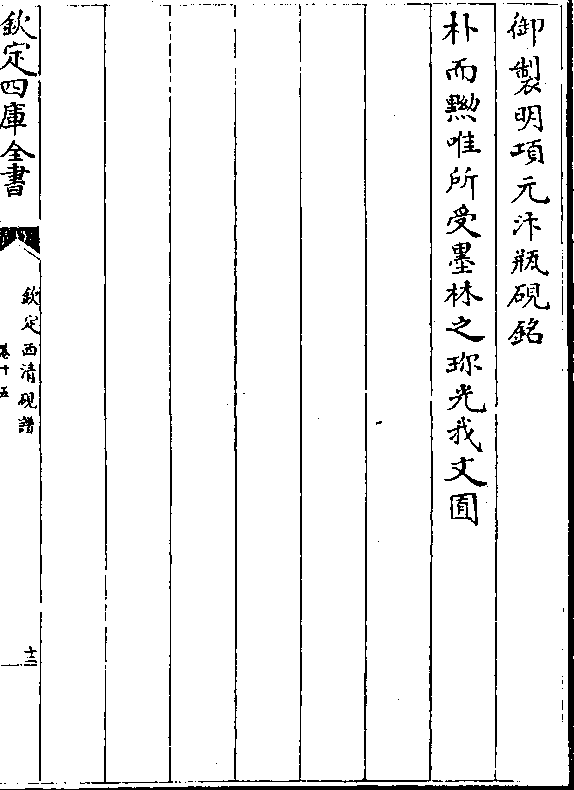 御製明項元汴瓶硯銘
朴而黝唯所受墨林之珎光我文囿
欽定四庫全書
欽定西清硯譜
卷十五
十三